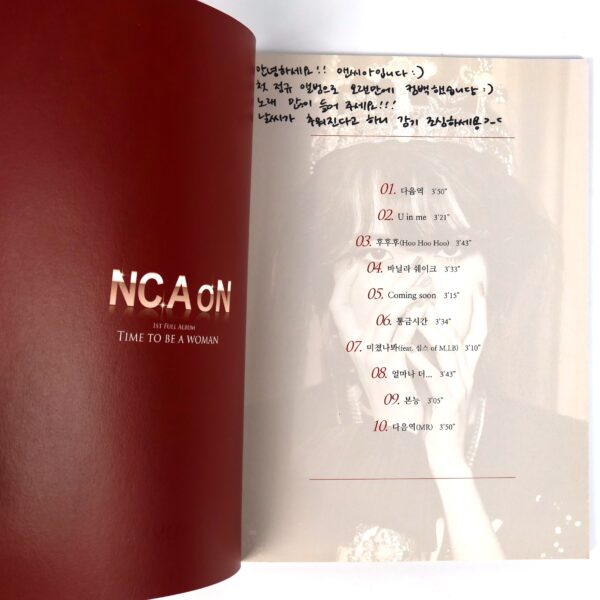 NC.A oN
1ST FULL ALBUM
TIME TO BE A WOMAN
안녕하세요!! 앤씨아입니다 :)
첫 정규 앨범으로 오랜만에 컴백했습니다 :)
노래 많이 들어 주세요!!!
날씨가 추워진다고 하니 감기 조심하세용 >_<
01. 다음역 3'50"
02. U in me 3'21"
03. 후후후(Hoo Hoo Hoo) 3'43"
04. 바닐라 쉐이크 3'33"
05. Coming soon 3'15"
06. 통금시간 3'34"
07. 미쳤나봐(feat. 심스 of M.I.B) 3'10"
08. 얼마나 더... 3'43"
09. 본능 3'05"
10. 다음역(MR) 3'50"